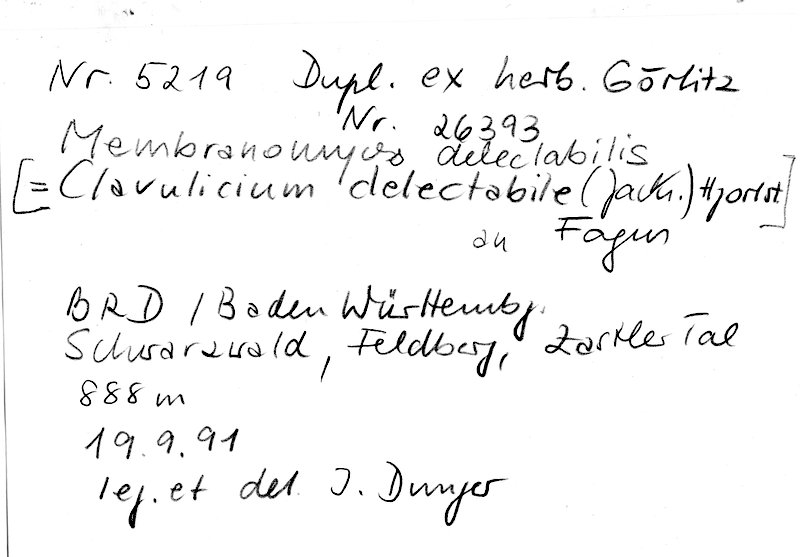 Nr. 5219 Dupl. ex herb. Görlitz
Nr. 26393
Membranomyces delectabilis
[= Clavulicium delectabile (Jack.) Hjortst]
an Fagus
BRD / Baden Württembg.
Schwarzwald, Feldberg, Zastler Tal
888 m
19.9.91
leg. et det. I. Dunger